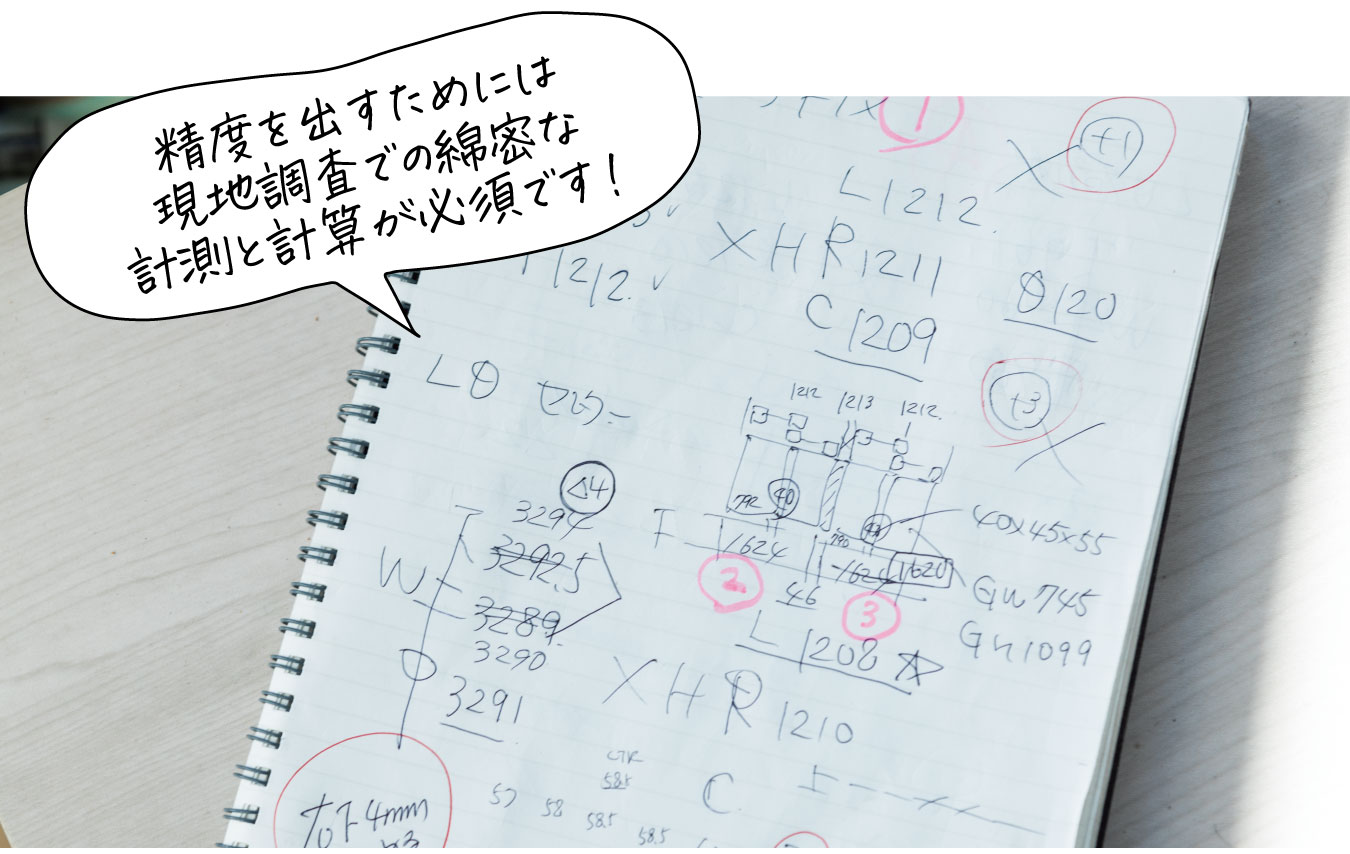 精度を出すためには
現地調査での綿密な
計測と計算が必須です！
1
+1
L1212
XHR1211
1212
C1209
120
+3
1212 1213 1212
△4
3294
3292.5
W
3289
3290
3291
792 40
1624
1624 1620
2
46
3
40×45×55
GW745
1099
L1208
XHR1210
58.5
57 58 58.5 58.5
C
4mm